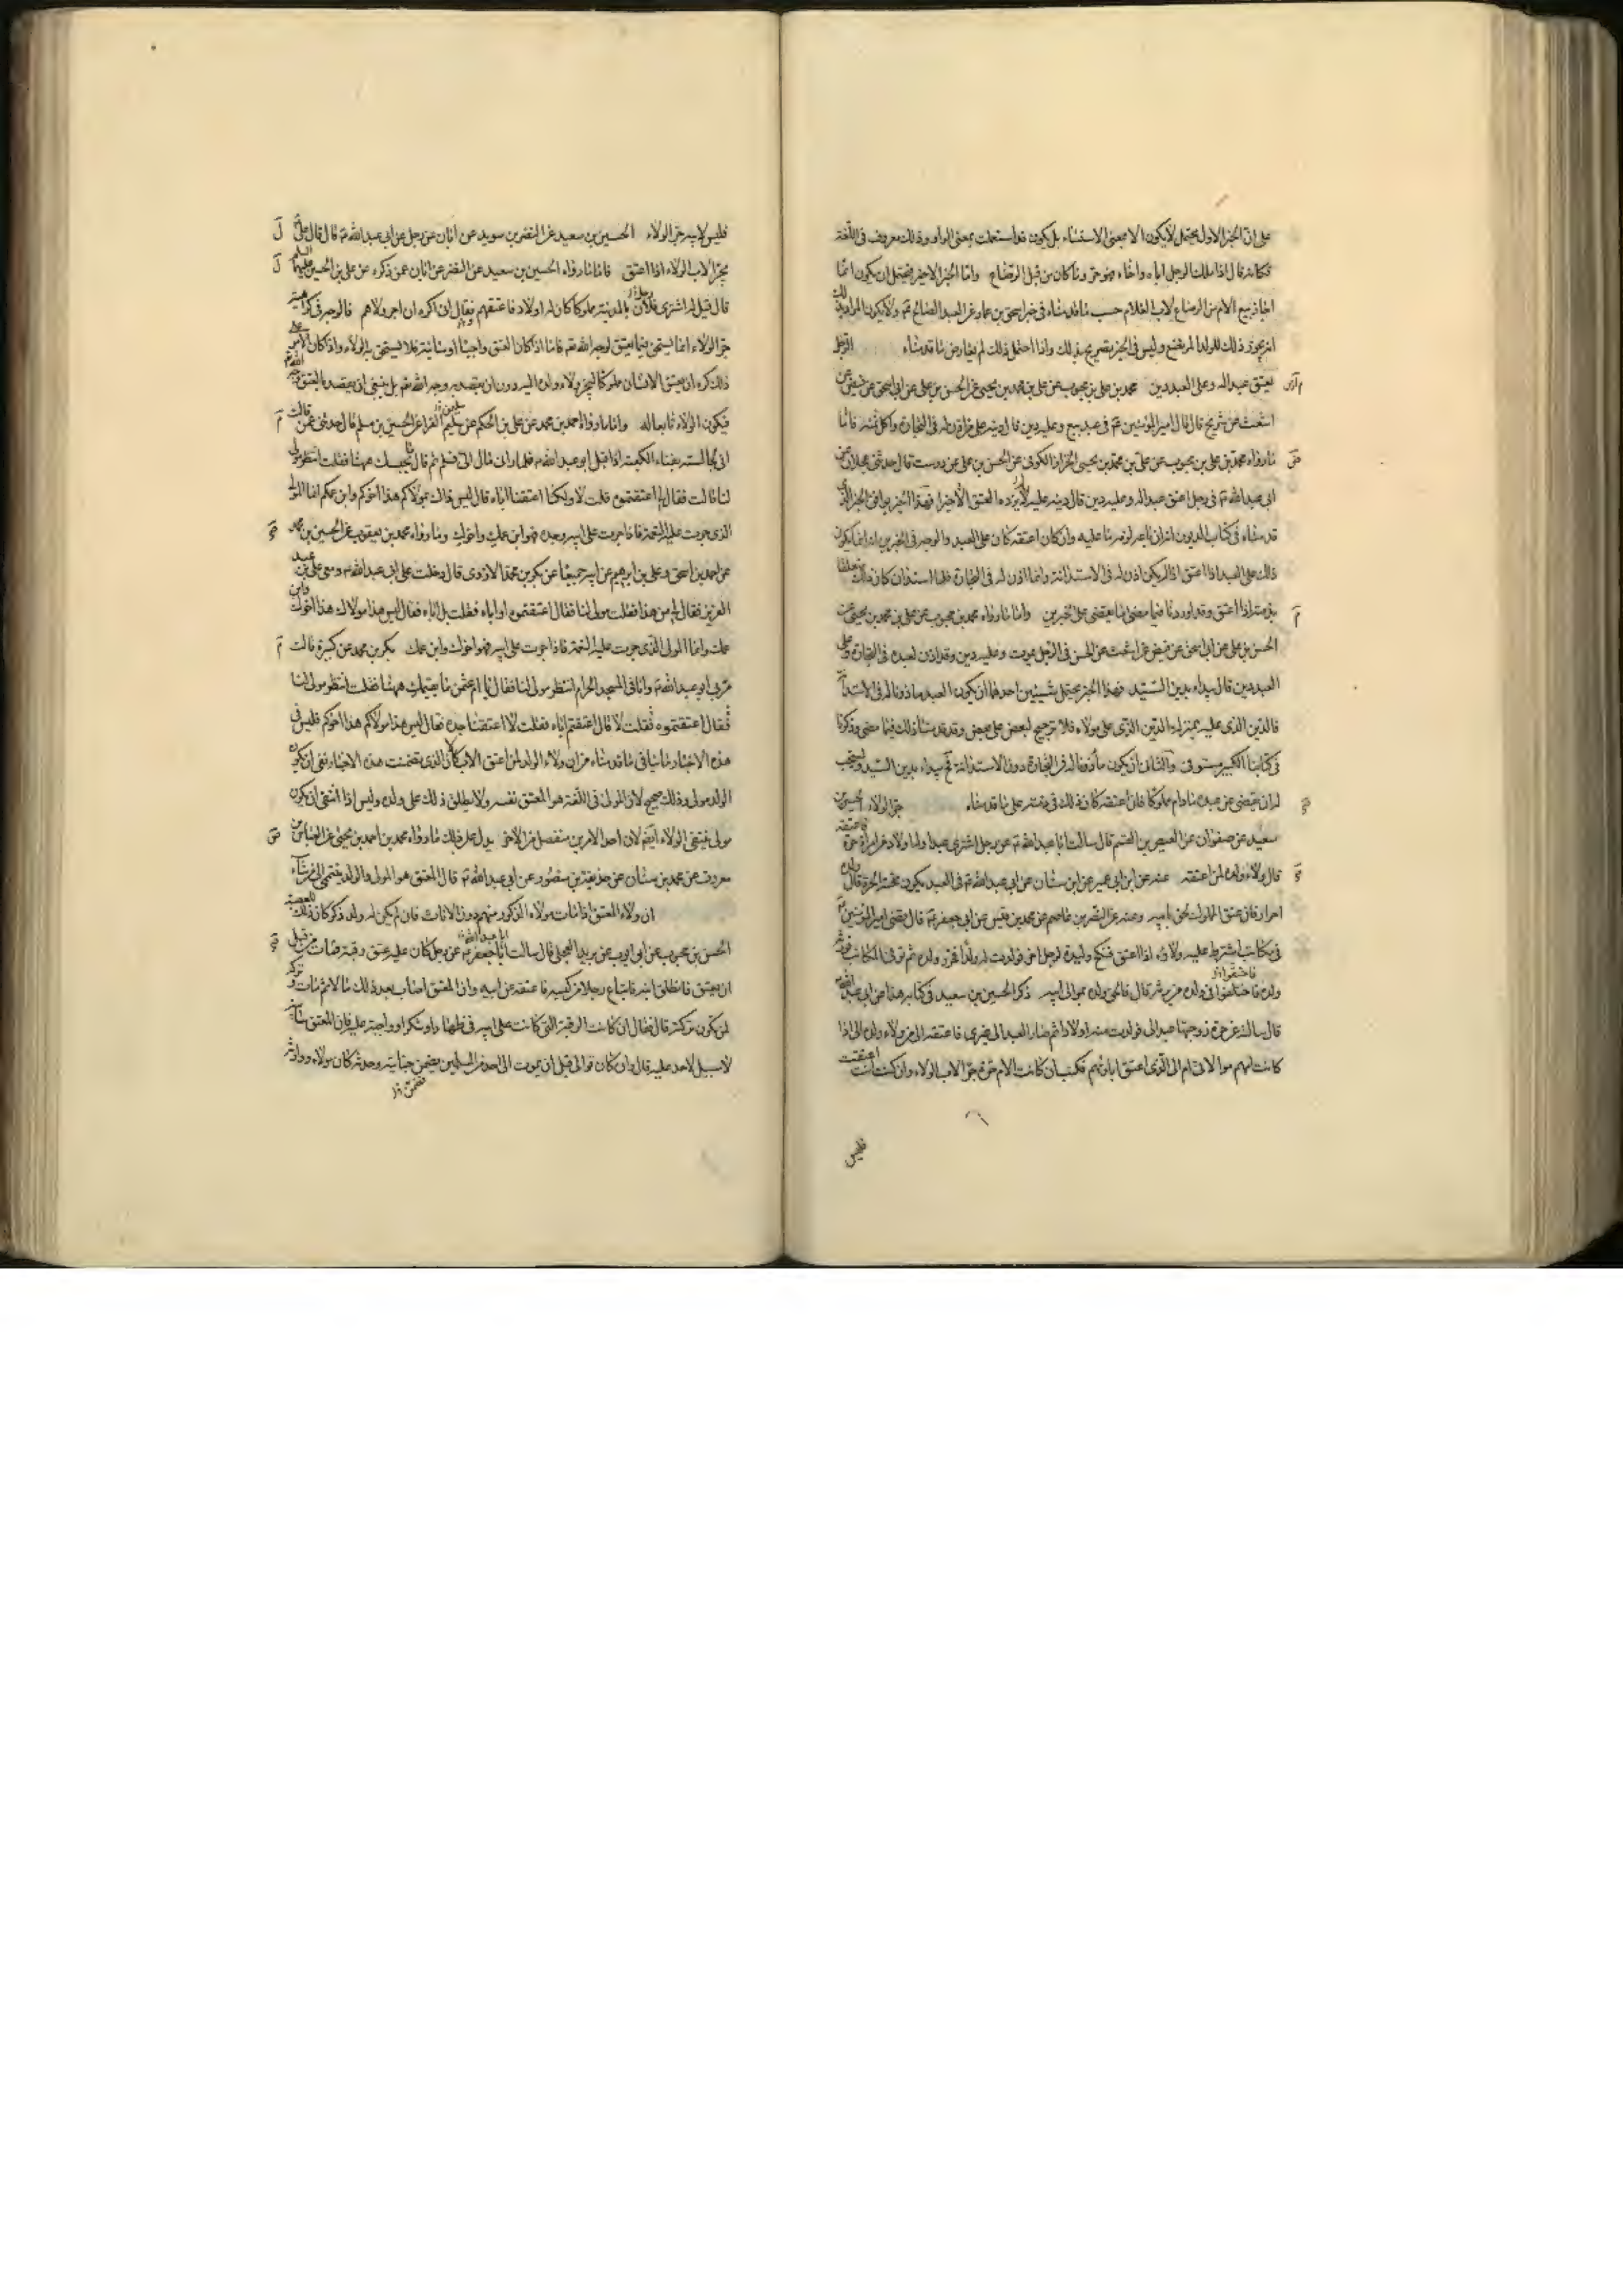 على ان الخبر الاول يحتمل لا يكون الا بمعنى الاستثناء بل يكون قد استعملت بمعنى الواو وذلك معروف في اللغة
فكانه قال اذا ملك الرجل اباه واخاه فهو حر وما كان من قبل الرضاع واما الخبر الاخير فيحتمل ان يكون انما
اجاز بيع الام من الرضاع لاب الغلام حسب ما قدمناه في خبر اسحق بن عمار عن العبد الصالح ع ولا يكون المراد بذلك
انه يجوز ذلك للولد المرتضع وليس في الخبر تصريح بذلك واذا احتمل ذلك لم يعارض ما قدمناه الرجل
يعتق عبدا له وعلى العبد دين محمد بن علي بن محبوب عن علي بن محمد بن يحيى عن الحسن بن علي عن ابي اسحق عن فيض عن
اشعث عن شريح قال قال امير المؤمنين ع في عبد بيع وعليه دين قال دينه على من اذن له في التجارة واكل ثمنه فاما
ما رواه محمد بن علي بن محبوب عن علي بن محمد بن يحيى الخزاز الكوفي عن الحسن بن علي عن درست قال حدثني عجلان عن
ابي عبد الله ع في رجل اعتق عبدا له وعليه دين قال دينه عليه لم يزده العتق الا خيرا فهذا الخبر يوافق الخبر الذي
قدمناه في كتاب الديون انه ان باعه لزمه ما عليه وان كان اعتقه كان على العبد والوجه في الخبرين انه انما يكون
ذلك على العبد اذا اعتق اذا لم يكن اذن له في الاستدانة وانما اذن له في التجارة فلما استدان كان ذلك متعلقا
بذمته اذا اعتق وقد اوردنا فيما مضى ما يقضي على الخبرين واما ما رواه محمد بن محبوب عن علي بن محمد بن يحيى عن
الحسن بن علي عن ابي اسحق عن فيض عن اشعث عن الحسن في الرجل يموت وعليه دين وقد اذن لعبده في التجارة وعلى
العبد دين قال يبداء بدين السيد فهذا الخبر يحتمل شيئين احدهما ان يكون العبد ماذونا له في الاستدانة
فالدين الذي عليه بمنزلة الدين الذي على مولاه فلا ترجيح لبعض على بعض وقد قدمنا ذلك فيما مضى وذكرنا
في كتابنا الكبير مستوفى والثاني ان يكون مأذونا له في التجارة دون الاستدانة فح يبداء بدين السيد ويستحب
له ان يقضى عن عبده ما دام مملوكا فان اعتقه كان ذلك في ذمته على ما قدمناه جر الولاء الحسين بن
سعيد عن صفوان عن العيص بن القسم قال سالت ابا عبد الله ع عن رجل اشترى عبدا وله اولاد من امراة حرة فاعتقه
قال ولاء ولده لمن اعتقه عنه عن ابن ابي عمير عن ابن سنان عن ابي عبد الله ع في العبد يكون تحته الحرة قال ولده
احرار فان عتق المملوك لحق بابيه وعنه عن النضر بن عاصم عن محمد بن قيس عن ابي جعفر ع قال قضى امير المؤمنين ع
في مكاتب اشترط عليه ولاؤه اذا اعتق فنكح وليدة لرجل اخر فولدت له ولدا فحرر ولده ثم توفى المكاتب فورثه
ولده فاختلفوا في ولده من يرثه قال فالحق ولده بموالي ابيه ذكر الحسين بن سعيد في كتابه هذا عن ابي عبد الله ع
قال سالته عن حرة زوجتها عبدا لي فولدت منه اولادا ثم صار العبد الى غيري فاعتقه الى من ولاء ولده الي اذا
كانت امهم مولاتي ام الى الذي اعتق اباهم فكتب ان كانت الام حرة جر الاب الولاء وان كنت انت اعتقت
فليس
فليس لابيه جر الولاء الحسين بن سعيد عن النضر بن سويد عن ابان عن رجل عن ابي عبد الله ع قال قال علي
يجر الاب الولاء اذا اعتق فاما ما رواه الحسين بن سعيد عن النضر عن ابان عمن ذكره عن علي بن الحسين عليهما السلم
قال قيل له اشترى فلان بالمدينة مملوكا كان له اولاد فاعتقهم فقال اني اكره ان اجر ولاهم فالوجه في كراهيته
جر الولاء انما يستحق فيما يعتق لوجه الله ع فاما اذا كان العتق واجبا او سائبة فلا يستحق به الولاء واذا كان الامر على
ذلك كره ان يعتق الانسان مملوكا ليجر ولاء ولده اليه دون ان يقصد به وجه الله ع بل ينبغي ان يقصد بالعتق وجه الله ع
فيكون الولاء تابعا له واما ما رواه احمد بن محمد عن علي بن الحكم عن سليم الفراء عن الحسين بن مسلم قال حدثتني عمتي قالت
اني لجالسة بفناء الكعبة اذا اقبل ابو عبد الله ع فلما راني مال الى فسلم ثم قال ما يحبسك ههنا فقلت انتظر مولى
لنا قالت فقال لي اعتقتموه قلت لا ولكنا اعتقنا اباه قال ليس ذاك بمولاكم هذا اخوكم وابن عمكم انما المولى
الذي جرت عليه النعمة فاذا جرت على ابيه وجده فهو ابن عمك واخوك وما رواه محمد بن يعقوب عن الحسين بن محمد
عن احمد بن اسحق وعلي بن ابرهيم عن ابيه جميعا عن بكر بن محمد الازدي قال دخلت على ابي عبد الله ع ومعي علي بن عبد
العزيز فقال لي من هذا فقلت مولى لنا فقال اعتقتموه او اباه فقلت بل اباه فقال ليس هذا مولاك هذا اخوك وابن
عمك وانما المولى الذي جرت عليه النعمة فاذا جرت على ابيه فهو اخوك وابن عمك بكر بن محمد عن كبيرة قالت
مر بي ابو عبد الله ع وانا في المسجد الحرام انتظر مولى لنا فقال يا ام عثمن ما يقيمك ههنا فقلت انتظر مولى لنا
فقال اعتقتموه فقلت لا قال اعتقتم اباه فقلت لا اعتقنا جده فقال ليس هذا مولاكم هذا اخوكم فليس في
هذه الاخبار ما ينافي ما قدمناه من ان ولاء الولد لمن اعتق الاب لان الذي تضمنت هذه الاخبار نفى ان يكون
الولد مولى وذلك صحيح لان المولى في اللغة هو المعتق نفسه ولا يطلق ذلك على ولده وليس اذا انتفى ان يكون
مولى ينتفي الولاء ايضا لان احد الامرين منفصل من الاخر يدل على ذلك ما رواه محمد بن احمد بن يحيى عن العباس بن
معروف عن محمد بن سنان عن حذيفة بن منصور عن ابي عبد الله ع قال المعتق هو المولى والولد ينتمي الى من شاء
ان ولاء المعتق اذا مات مولاه الذكور منهم دون الاناث فان لم يكن له ولد ذكر كان ذلك للعصبة
الحسن بن محبوب عن ابي ايوب عن بريد العجلي قال سالت ابا جعفر ع عن رجل كان عليه عتق رقبة فمات من قبل
ان يعتق فانطلق ابنه فابتاع رجلا من كسبه فاعتقه عن ابيه وان المعتق اصاب بعد ذلك مالا ثم مات وتركه
لمن يكون تركته قال فقال ان كانت الرقبة التي كانت على ابيه في ظهار او شكر او واجبة عليه فان المعتق سائبة
لا سبيل لاحد عليه قال وان كان توالى قبل ان يموت الى احد من المسلمين يضمن جنايته وحدثه كان مولاه ووارثه